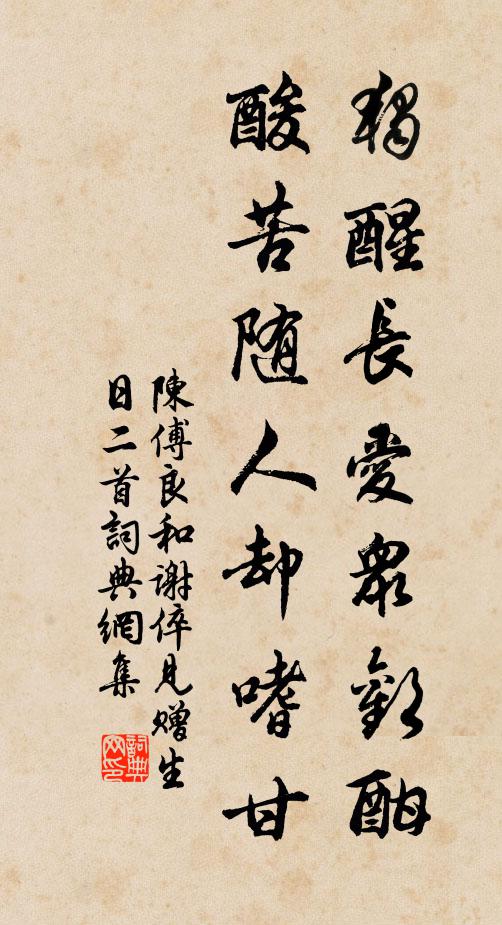 獨醒長愛眾歡酣
酸苦随人却嗜甘
陳傅良和謝倅見贈生
日二首詞典網集
詞典
网印